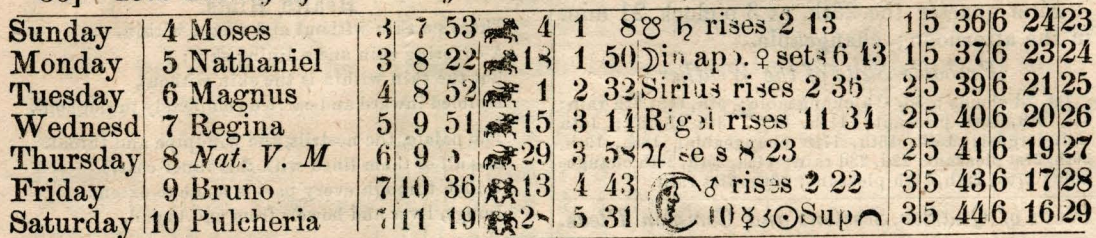 Sunday 4 Moses 3 7 53 4 1 8 ☋ ♄ rises 2 13 1 5 36 6 24 23
Monday 5 Nathaniel 3 8 22 18 1 50 ☽ in ap. ♀ sets 6 13 1 5 37 6 23 24
Tuesday 6 Magnus 4 8 52 1 2 32 Sirius rises 2 36 2 5 39 6 21 25
Wednesd 7 Regina 5 9 51 15 3 14 Rigel rises 11 34 2 5 40 6 20 26
Thursday 8 Nat. V. M 6 9 29 3 58 ♃ sets 8 23 2 5 41 6 19 27
Friday 9 Bruno 7 10 36 13 4 43 ☾ ♂ rises 2 22 3 5 43 6 17 28
Saturday 10 Pulcheria 7 11 19 5 31 10 ☿ ☌ ☉ Sup 3 5 44 6 16 29